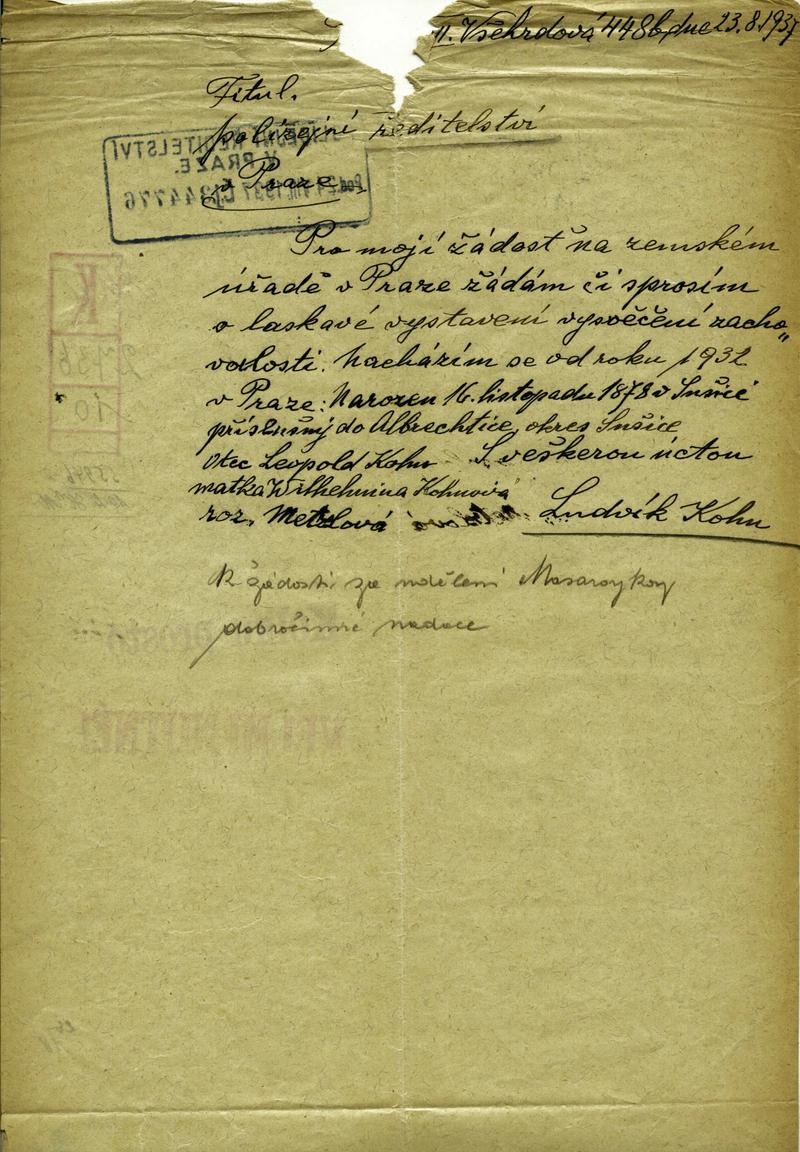 II. Všehrdová 448 dne 23.8.1937
Titul.
policejní ředitelství
v Praze
Pro moji žádost na zemském
úřadě v Praze žádám či sprosím
o laskavé vystavení vysvěčení zacho„
valosti. Nacházím se od roku 1932
v Praze: Narozen 16. listopadu 1878 v Sušici
příslušný do Albrechtice, okres Sušice
Otec Leopold Kohn S veškerou úctou
matka Wilhelmina Kohnová
roz. Metzlová Ludvík Kohn
K žádosti za udělení Masarykovy
dobročinné nadace
ŘEDITELSTVÍ
V PRAZE.
1937 34776
K
10